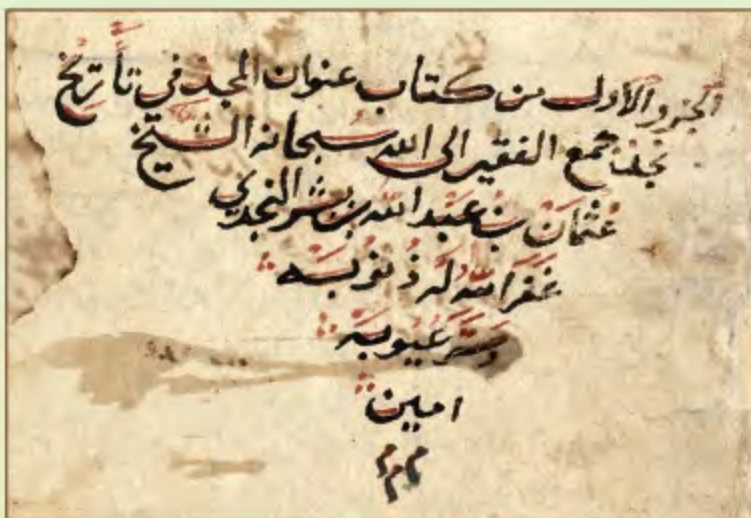 الجزو الأول من كتاب عنوان المجد في تأريخ
نجد جمع الفقير الى الله سبحانه الشيخ
عثمان بن عبد الله بن بشر النجدي
غفر الله له ذنوبه
وستر عيوبه
امين
م م م